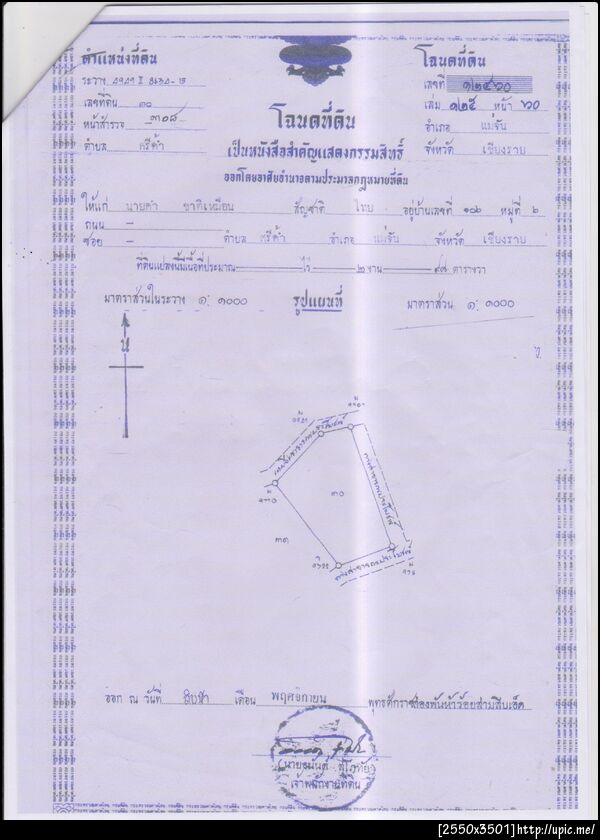 ตำแหน่งที่ดิน
โฉนดที่ดิน
ระวาง
เลขที่ ๑๒๔๖๐
เลขที่ดิน ๓๐
เล่ม ๑๒๕ หน้า ๖๐
หน้าสำรวจ ๓๐๘
โฉนดที่ดิน
อำเภอ แม่จัน
ตำบล ศรีค้ำ
เป็นหนังสือสำคัญแสดงกรรมสิทธิ์
จังหวัด เชียงราย
ออกโดยอาศัยอำนาจตามประมวลกฎหมายที่ดิน
ให้แก่ นายคำ ชาติเหมือน สัญชาติ ไทย อยู่บ้านเลขที่ ๑๐๖ หมู่ที่ ๖
ถนน –
ซอย – ตำบล ศรีค้ำ อำเภอ แม่จัน จังหวัด เชียงราย
ที่ดินแปลงนี้มีเนื้อที่ประมาณ ไร่ ๒ งาน ตารางวา
มาตราส่วนในระวาง ๑: ๑๐๐๐ รูปแผนที่ มาตราส่วน ๑: ๑๐๐๐
น
ทางสาธารณประโยชน์
ทางสาธารณประโยชน์
๓๐
๓๑
ทางสาธารณประโยชน์
ออก ณ วันที่ สิบห้า เดือน พฤศจิกายน พุทธศักราช สองพันห้าร้อยสามสิบเอ็ด
เจ้าพนักงานที่ดิน
[2550x3501]http://upic.me/